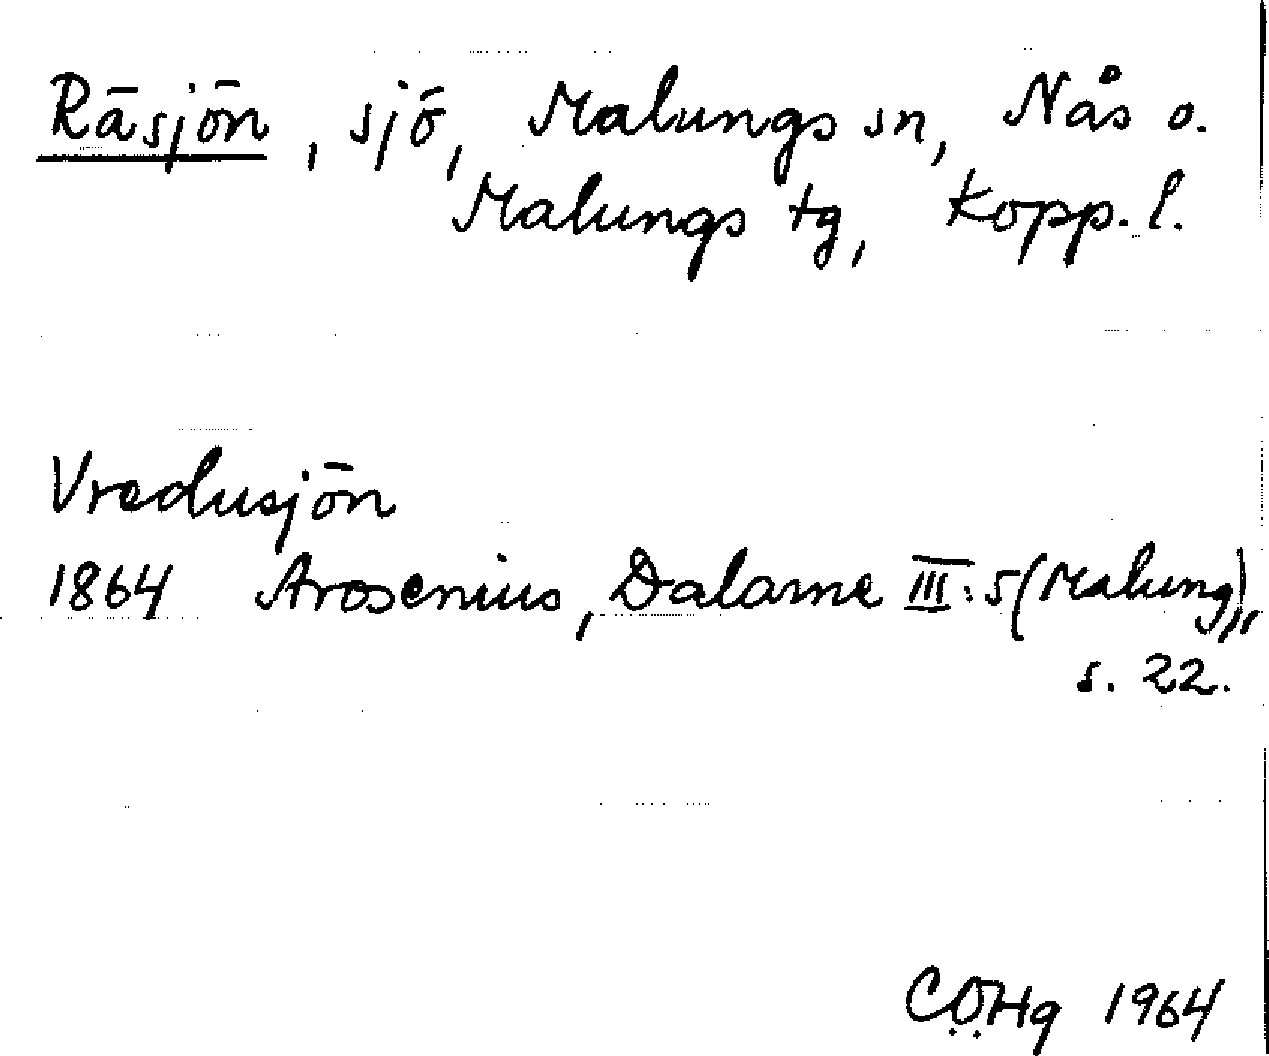 Räsjön, sjö, Malungs sn, Nås o.
Malungs tg, Kopp. l.
Vredusjön
1864 Arosenius, Dalarne III:5 (Malung),
s. 22.
CÖHg 1964